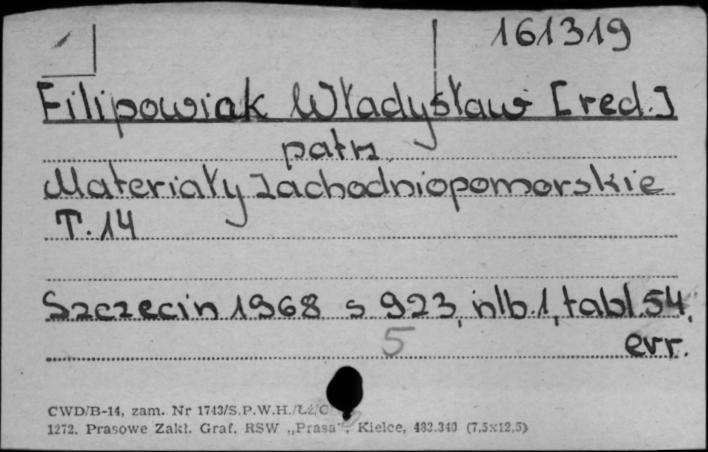 161319
Filipowiak Władysław [red.]
patrz
Materiały Zachodniopomorskie
T. 14
Szczecin 1968 s 923, nlb. 1, tabl. 54,
5 err.
CWD/B-14, zam. Nr 1743/S.P.W.H./Łż/
1272. Prasowe Zakł. Graf. RSW „Prasa”, Kielce, 483.340 (7,5x12,5)